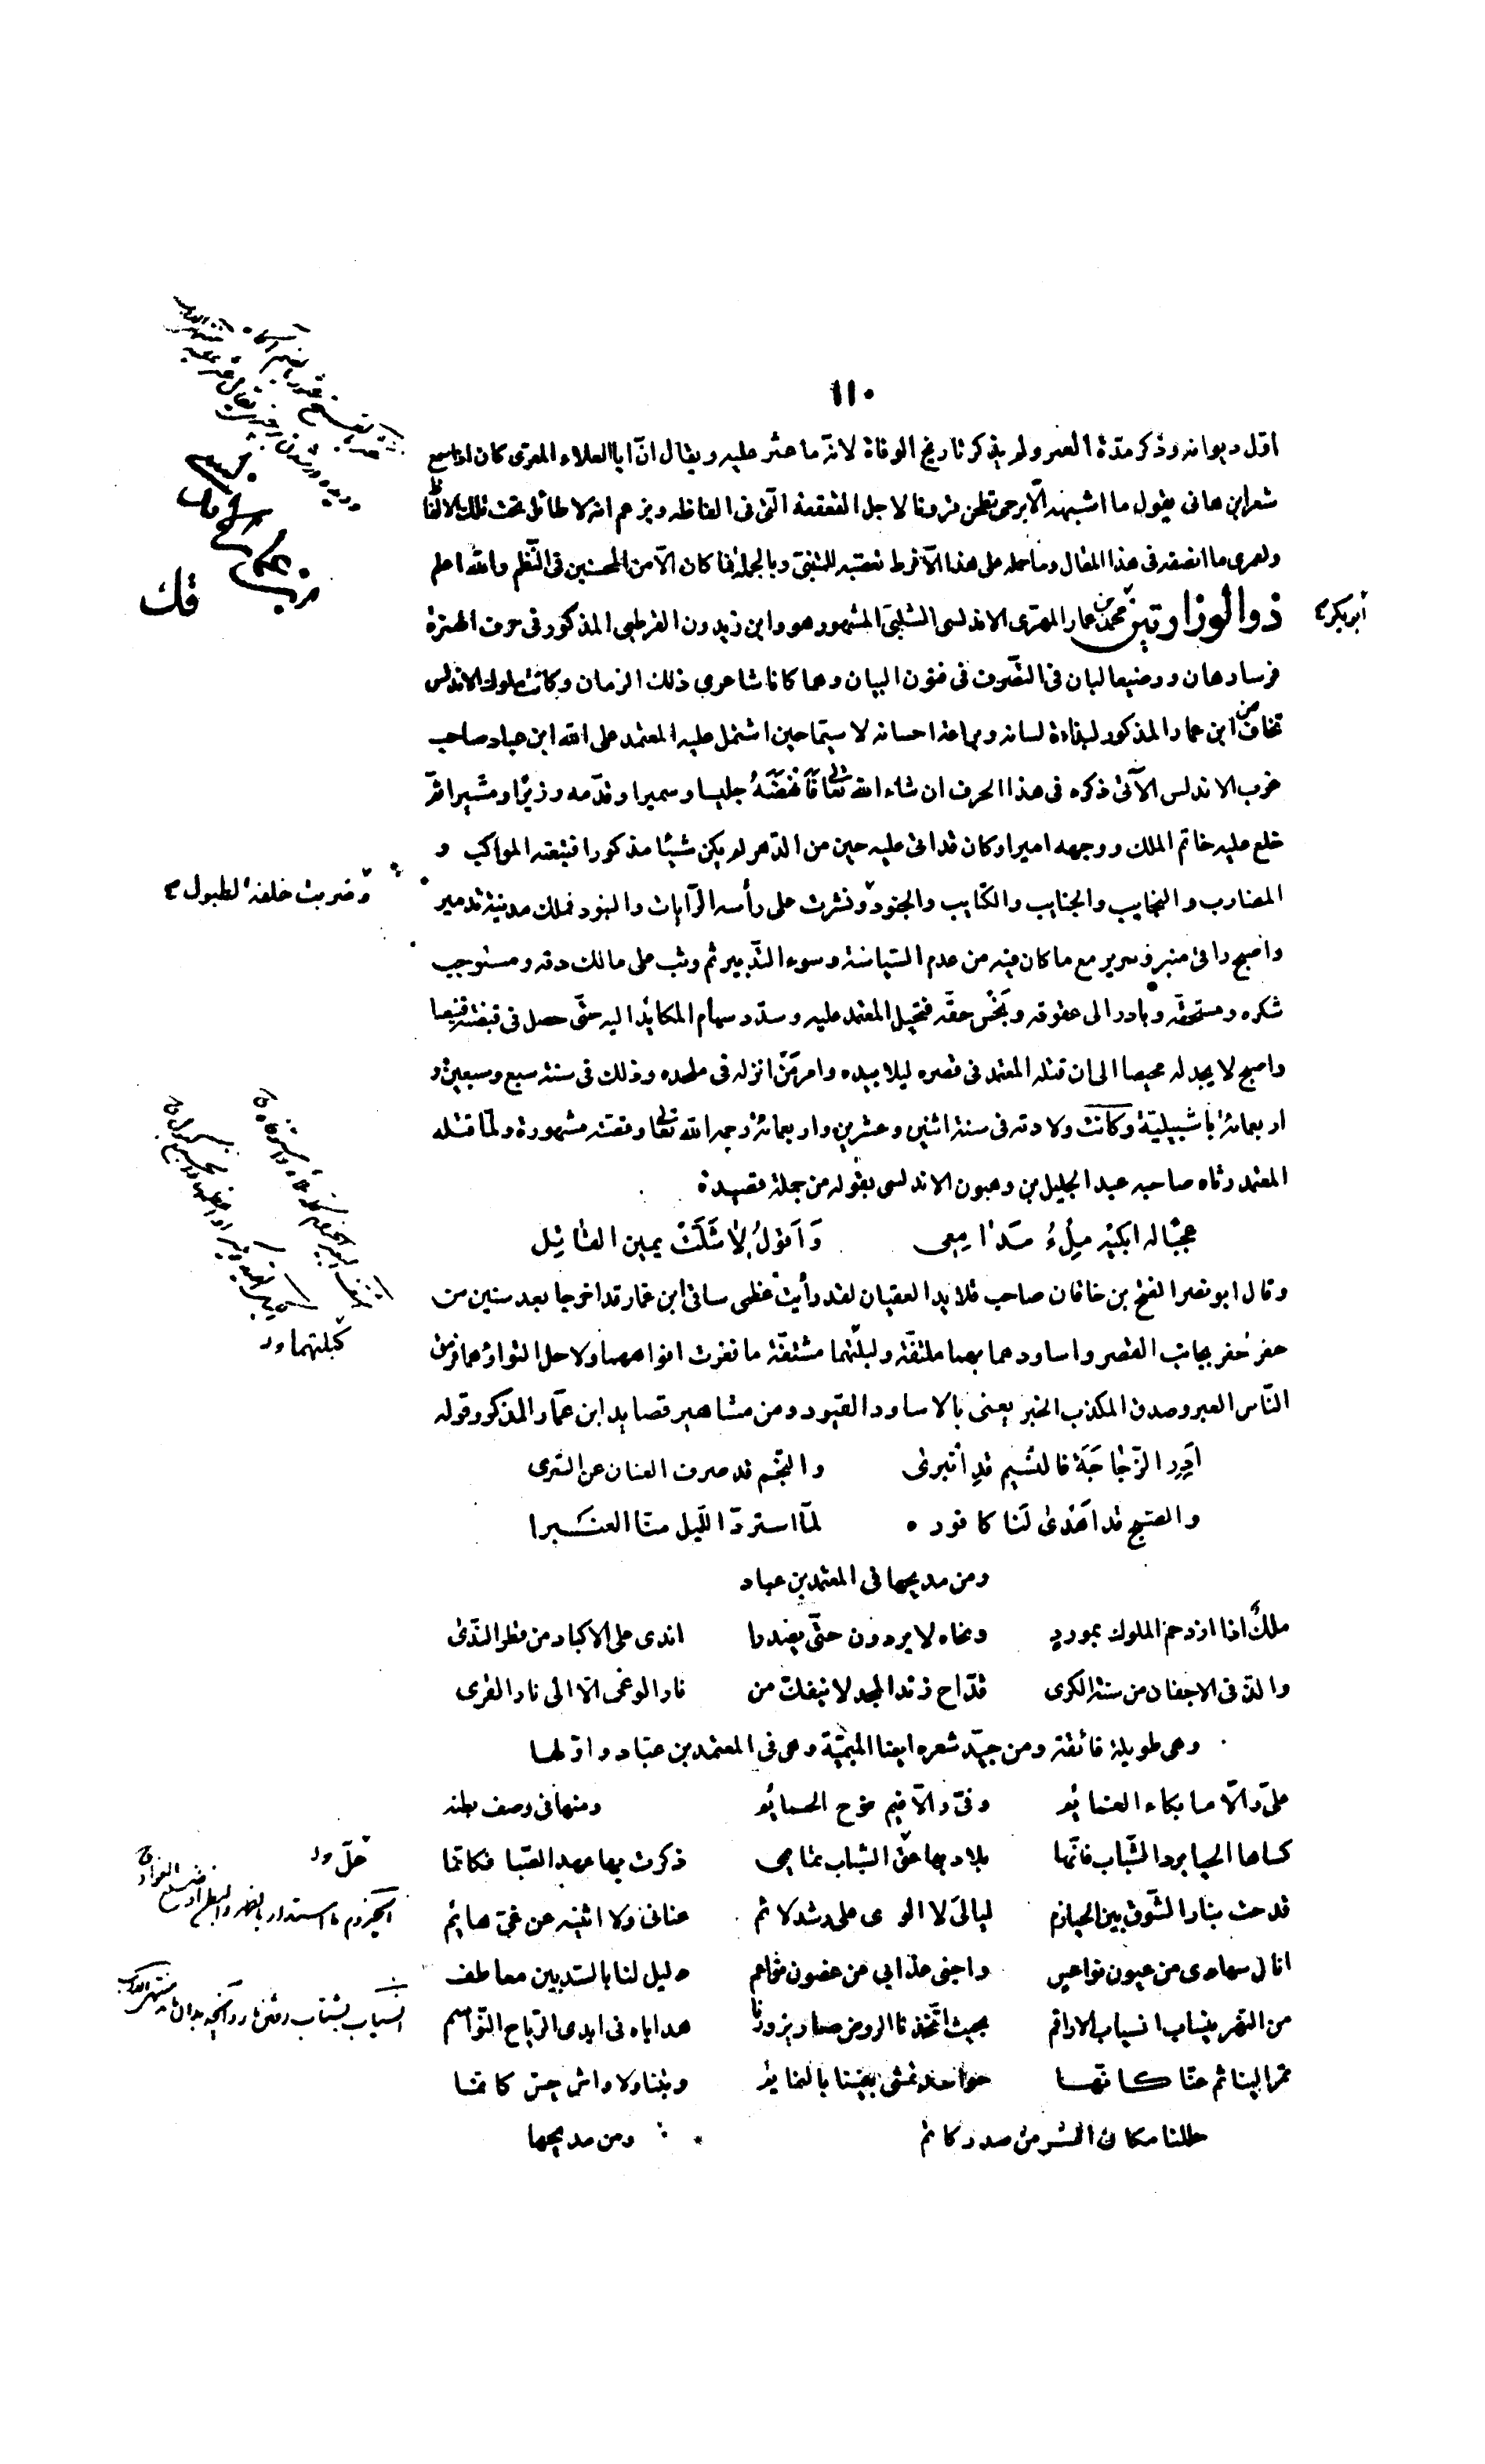 ١١٠
اوّل ديوانه وذكر مدّة العمر ولم يذكر تاريخ الوفاة لانّه ما عثر عليه ويقال انّ ابا العلاء المعرّى كان اذا سمع
شعر ابن هانى يقول ما اشبهه الّا برحى تطحن قرونا لاجل القعقعة الّتى فى الفاظه ويزعم انه لا طائل تحت تلك الالفاظ
ولعمرى ما انصفه فى هذا المقال وما حمله على هذا الّا فرط تعصّبه للمتنبّى وبالجملة فما كان الّا من المحسنين فى النّظم والله اعلم
ذو الوزارتين محمّد بن عمار المهرى الاندلسى الشلبى المشهور هو وابن زيدون القرطبى المذكور فى حرف الهمزة
ابو بكر
فرسا رهان ورضيعا لبان فى التصّرف فى فنون البيان وهما كانا شاعرى ذلك الزمان وكانت ملوك الاندلس
تخاف من ابن عمار المذكور لبذاءة لسانه وبراعة احسانه لا سيّما حين اشتمل عليه المعتمد على الله ابن عباد صاحب
غرب الاندلس الآتى ذكره فى هذا الحرف ان شاء الله تعالى فَانْهَضَهُ جليسا وسميرا وقدّمه وزيرًا ومشيرا ثمّ
خلع عليه خاتم الملك ووجهه اميرا وكان قد اتى عليه حين من الدّهر لم يكن شيئا مذكورا فتبعته المواكب و
المضارب والنجايب والجنايب والكتايب والجنود ونشرت على رأسه الرّايات والبنود فملك مدينة تدمير
وضربت خلفه الطبول
واصبح راقى منبر وسرير مع ما كان فيه من عدم السّياسة وسوء التّدبير ثم وثب على مالك رقه ومستوجب
شكره ومستحقّه وبادر الى عقوقه وبَخْسِ حقّه فتحيل المعتمد عليه وسدّد سهام المكائد اليه حتّى حصل فى قبضته قنيصا
واصبح لا يجد له محيصا الى ان قتله المعتمد فى قصره ليلا بيده وامر مَنْ انزله فى ملحده وذلك فى سنة سبع وسبعين و
اربعمائة باشبيليّة وكانت ولادته فى سنة اثنين وعشرين واربعمائة رحمه الله تعالى وقصّته مشهورة ولمّا قتله
المعتمد رثاه صاحبه عبد الجليل بن وهبون الاندلسى بقوله من جملة قصيدة
عجبًا له ابكيه مِلْءُ مَدَامِعِى وَاَقولُ لا شَلَّتْ يمين القاتِل
وقال ابو نصر الفتح بن خاقان صاحب قلايد العقيان لقد رأيت عظمى ساقى ابن عمار قد اخرجا بعد سنين من
حفر حُفر بجانب القصر واساودهما بهما ملتفّة ولبلّتهما مشتقّة ما فغرت افواههما ولا حل التواؤهما فرمق
النّاس العبر وصدق المكذب الخبر يعنى بالاساود القيود ومن مشاهير قصايد ابن عمّار المذكور قوله
اَدِرِ الزّجَاجَةَ فالنّسيم قدِ انْبرى والنّجم قد صرف العنان عن السّرى
والصبح قد اَهْدى لَنا كافوره لمّا استردّ اللّيل منّا العنبرا
ومن مديحها فى المعتمد بن عباد
ملكٌ اذا ازدحم الملوك بموردٍ ونحاه لا يردون حتّى يصدرا اندى على الاكباد من قطر النّدى
والذّ فى الاجفان من سنة الكرى قدّاح زند المجد لا ينفك من نار الوغى الّا الى نار القرى
وهى طويلة فائقة ومن جيّد شعره ايضا الميميّة وهى فى المعتمد بن عبّاد واوّلها
علىّ والّا ما بكاء الغمائم وفىّ والّا فيم نوح الحمائم ومنها فى وصف وطنه
كساها الحيا برد الشّباب فانّها بلاد بها عقّ الشّباب تمائمى ذكرت بها عهد الصّبا فكانّما
قدحت بنار الشّوق بين الحيازم ليالىَ لا الوى على رشد لائم عنانى ولا اثنيه عن غىّ هائم
انال سهادى من عيون نواعس واجنى عذابى من غصون نواعم وليل لنا بالسّد بين معاطف
من النّهر ينساب انسياب الاراقم بحيث اتّخذنا الروض جارا يزورنا هداياه فى ايدى الرّياح النّواسم
تمرّ الينا ثم عنّا كانّها حواسد تمشى بيننا بالنمايم وبتنا ولا واش يحسّ كانّنا
حللنا مكان السّر من صدر كاتم ومن مديحها